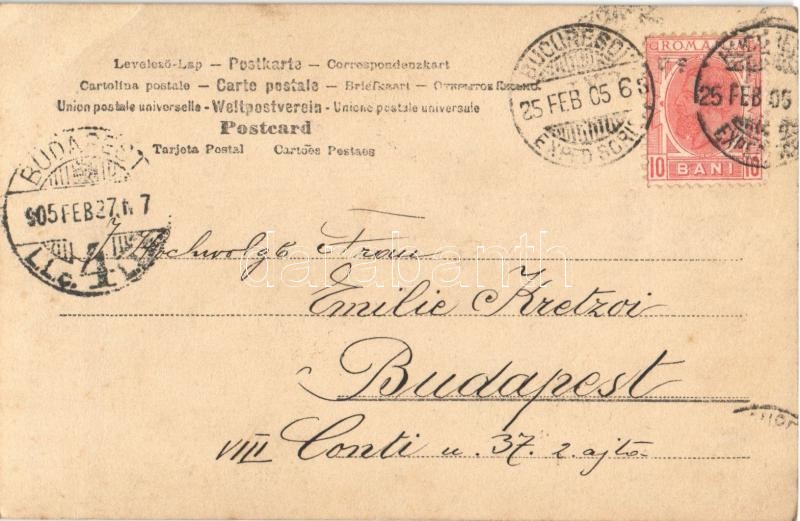 Levelező-Lap – Postkarte – Correspondenzkart
Cartolina postale – Carte postale – Briefkaart – Открытое письмо.
Union postale universelle - Weltpostverein - Unione postale universale
Postcard
Tarjeta Postal Cartões Postaes
BUCURESCI
25 FEB 05 6
EXPED SCRI
ROMANIA
10 BANI 10
25 FEB 05
BUDAPEST
905 FEB 27
Hochwolgb. Frau
Emilie Kretzoi
Budapest
VIII Conti u. 37. 2. ajtó
darabanth